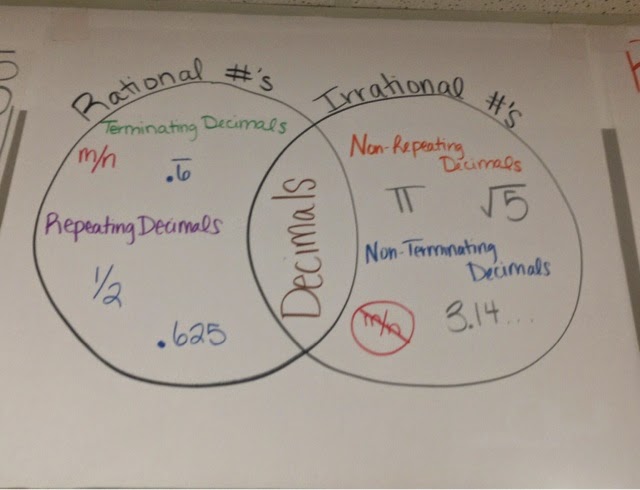 Rational #'s
Terminating Decimals
m/n
.6̅
Repeating Decimals
1/2
.625
Decimals
Irrational #'s
Non-Repeating
Decimals
π
√5
Non-Terminating
Decimals
m/n
3.14....